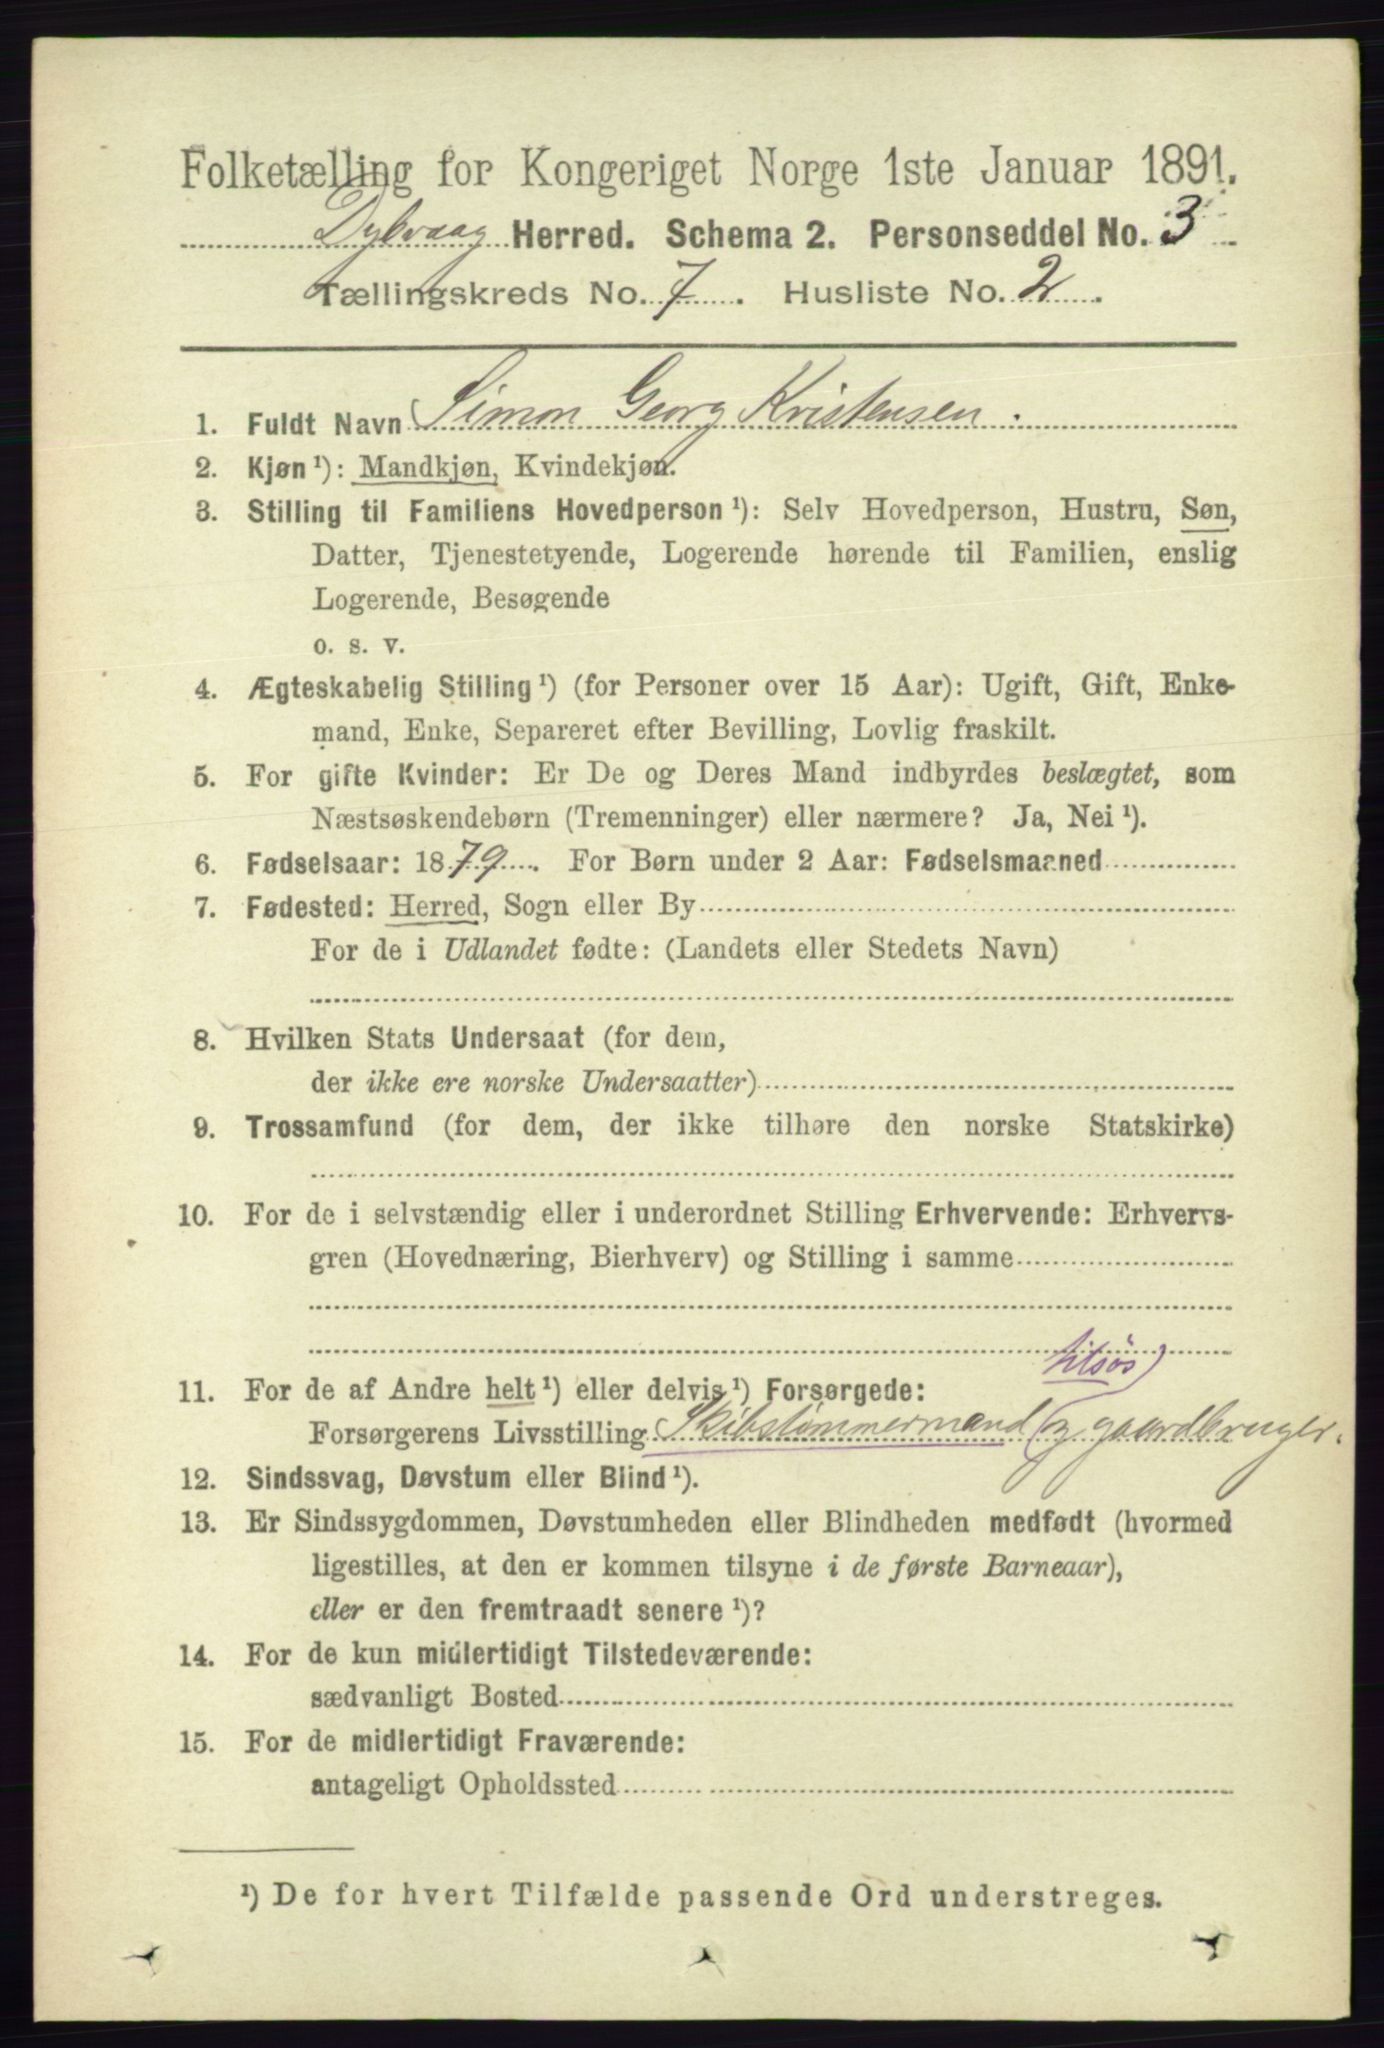 Folketælling for Kongeriget Norge 1ste Januar 1891.
Dybvaag Herred. Schema 2. Personseddel No. 3
Tællingskreds No. 7. Husliste No. 2.
1. Fuldt Navn Simon Georg Kristensen.
2. Kjøn ¹): Mandkjøn, Kvindekjøn.
3. Stilling til Familiens Hovedperson ¹): Selv Hovedperson, Hustru, Søn,
Datter, Tjenestetyende, Logerende hørende til Familien, enslig
Logerende, Besøgende
o. s. v.
4. Ægteskabelig Stilling ¹) (for Personer over 15 Aar): Ugift, Gift, Enke-
mand, Enke, Separeret efter Bevilling, Lovlig fraskilt.
5. For gifte Kvinder: Er De og Deres Mand indbyrdes beslægtet, som
Næstsøskendebørn (Tremenninger) eller nærmere? Ja, Nei ¹).
6. Fødselsaar: 1879. For Børn under 2 Aar: Fødselsmaaned
7. Fødested: Herred, Sogn eller By
For de i Udlandet fødte: (Landets eller Stedets Navn)
8. Hvilken Stats Undersaat (for dem,
der ikke ere norske Undersaatter)
9. Trossamfund (for dem, der ikke tilhøre den norske Statskirke)
10. For de i selvstændig eller i underordnet Stilling Erhvervende: Erhvervs-
gren (Hovednæring, Bierhverv) og Stilling i samme
tilsøs)
11. For de af Andre helt ¹) eller delvis ¹) Forsørgede:
Forsørgerens Livsstilling Skibstømmermand (og gaardbruger.
12. Sindssvag, Døvstum eller Blind ¹).
13. Er Sindssygdommen, Døvstumheden eller Blindheden medfødt (hvormed
ligestilles, at den er kommen tilsyne i de første Barneaar),
eller er den fremtraadt senere ¹)?
14. For de kun midlertidigt Tilstedeværende:
sædvanligt Bosted
15. For de midlertidigt Fraværende:
antageligt Opholdssted
¹) De for hvert Tilfælde passende Ord understreges.